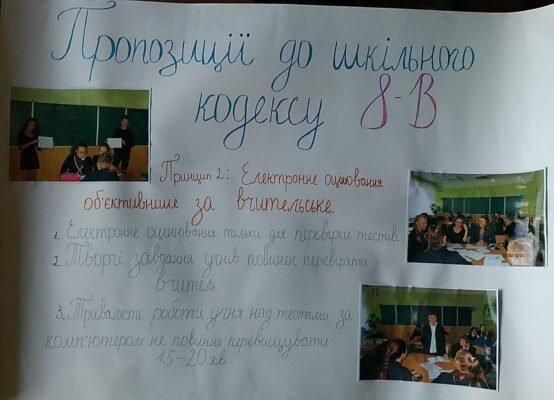 Пропозиції до шкільного
кодексу 8-В
Принцип 2: Електронне оцінювання
об'єктивніше за вчительське.
1. Електронне оцінювання тільки для перевірки тестів.
2. Творчі завдання учнів повинен перевіряти
вчитель
3. Тривалість роботи учня над тестами за
комп'ютером не повинна перевищувати
15-20 хв.